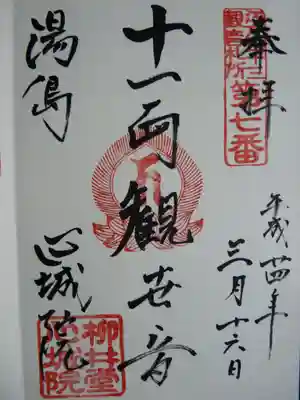 奉拝
江戸三十三
観音札所第七番
平成廿四年
三月十六日
十一面観世音
湯島
心城院
柳井堂
心城院